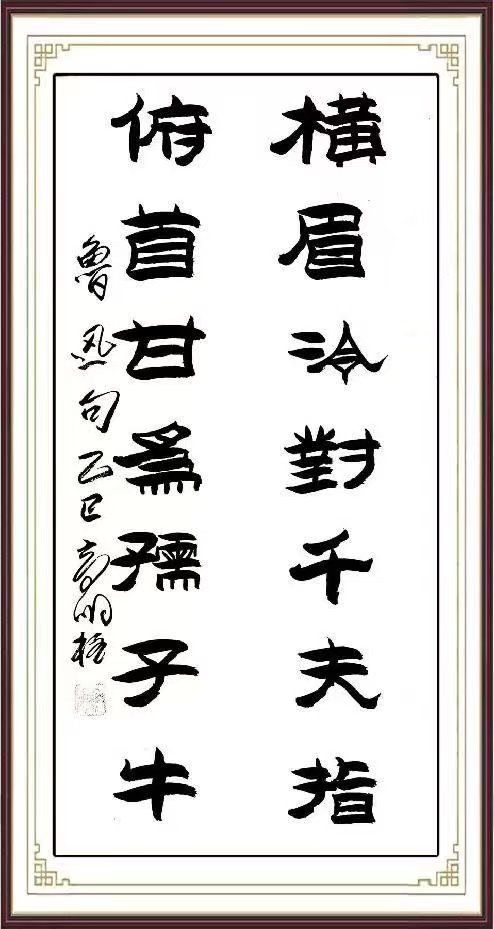 橫眉冷對千夫指
俯首甘為孺子牛
魯迅句乙巳高明